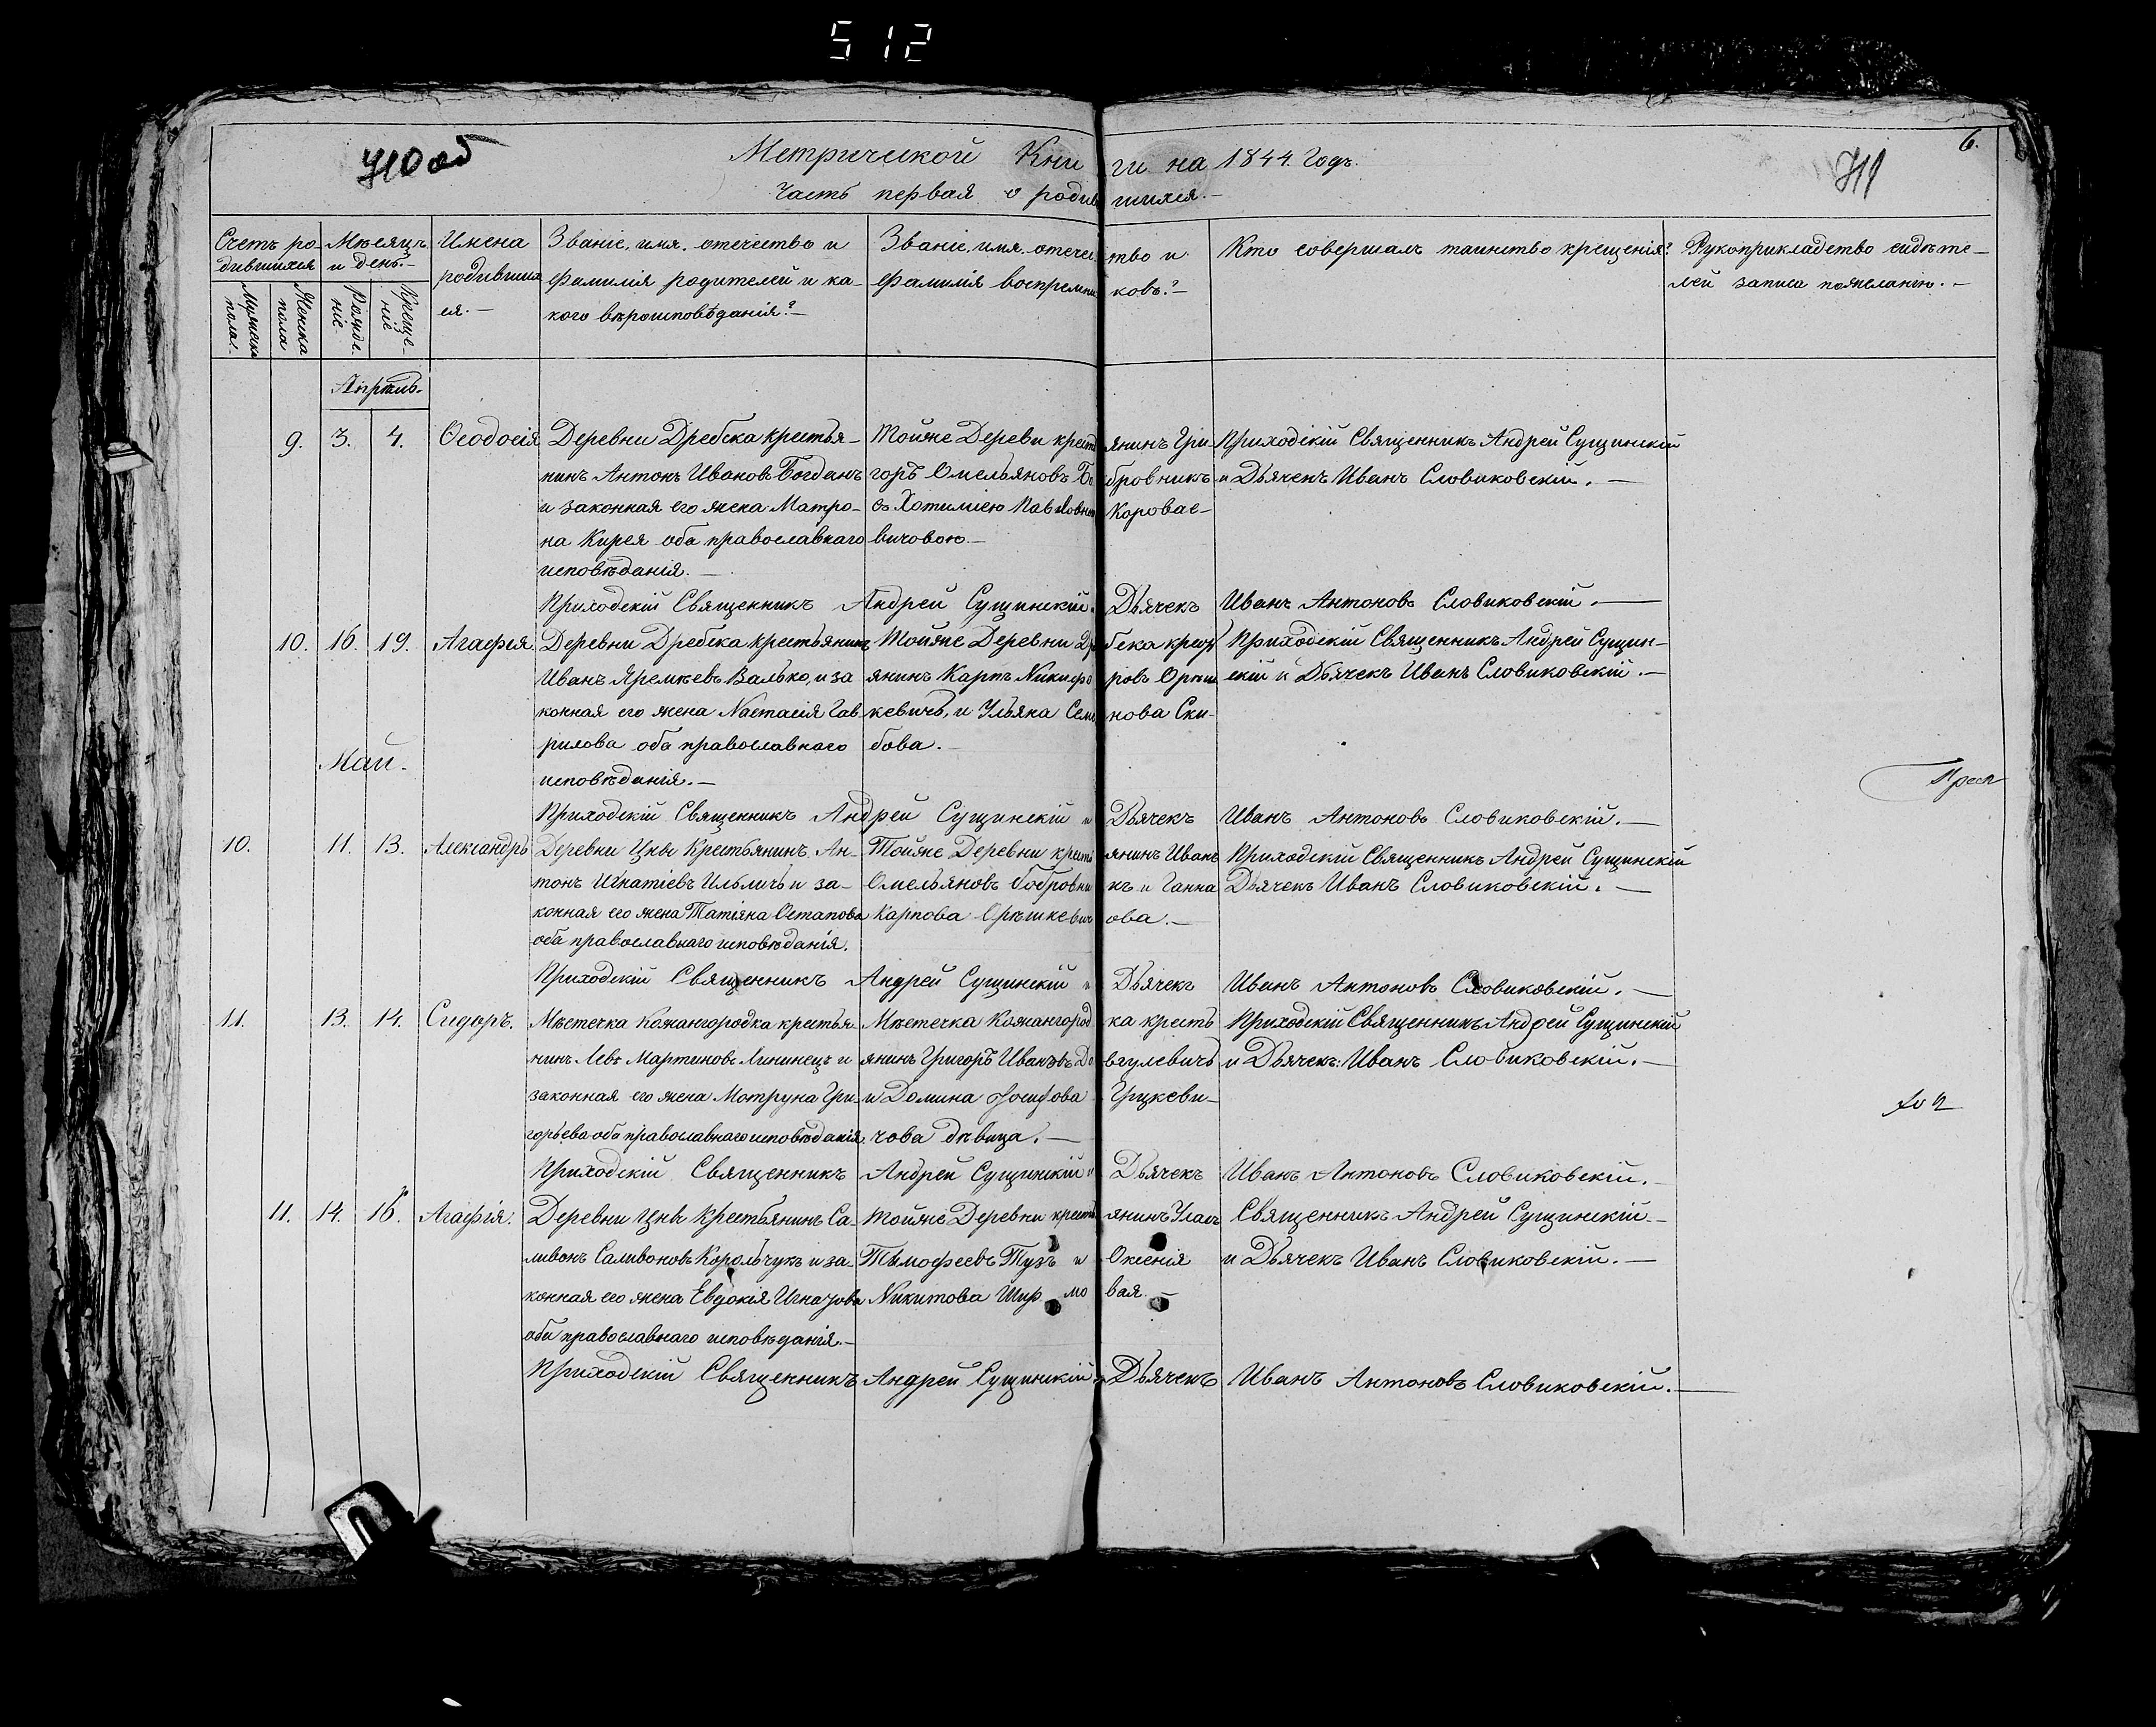 512
710 об
Метрической Книги на 1844. Годъ.
6.
711
Часть первая о родившихся.
Счетъ ро-
дившихся
Мѣсяцъ
и день.
Имена
родивших
ся.
Званіе, имя, отечество и
фамилія родителей и ка-
кого вѣроисповѣданія?
Званіе, имя, отечество и
фамилія воспремниковъ?
Кто совершалъ таинство крещенія?
Рукоприкладство свидѣте-
лей записи пожеланію.
Мужеска
пола.
Женска
пола
Рожде-
ніе.
Креще-
ніе
Апрѣль.
9. 3. 4. Ѳеодосія
Деревни Дребска крестья-
нинъ Антонъ Ивановъ Богданъ
и законная его жена Матро-
на Кирея оба православнаго
исповѣданія.
Тойже Деревн крестянинъ Гри-
горъ Омельяновъ Бобровникъ
съ Хотиміею Павловною Коровае-
вичовою.
Приходскій Священникъ Андрей Сущинскій
и Дьячекъ Иванъ Словиковскій.
Приходскій Священникъ Андрей Сущинскій. Дьячекъ Иванъ Антоновъ Словиковскій.
10. 16. 19. Агафія
Деревни Дребска крестьянинъ
Иванъ Яремѣевъ Валько, и за
конная его жена Настасія Гав-
рилова оба православнаго
исповѣданія.
Тойже Деревни Дребска крест
янинъ Карпъ Никифоровъ Орѣш
кевичъ, и Ульяна Семенова Ски-
бова.
Приходскій Священникъ Андрей Сущин-
скій и Дьячекъ Иванъ Словиковскій.
Май.
Приходскій Священникъ Андрей Сущинскій и Дьячекъ Иванъ Антоновъ Словиковскій.
10. 11. 13. Александръ
Деревни Цны Крестьянинъ Ан-
тонъ Игнатіевъ Ильличъ и за-
конная его жена Татіяна Остапова
оба православнаго исповѣданія.
Тойже Деревни крестянинъ Иванъ
Омельяновъ Бобровникъ и Ганна
Карпова Орѣшкевичова.
Приходскій Священникъ Андрей Сущинскій
Дьячекъ Иванъ Словиковскій.
Приходскій Священникъ Андрей Сущинскій и Дьячекъ Иванъ Антоновъ Словиковскій.
11. 13. 14. Сидоръ.
Мѣстечка Кожангородка крестья-
нинъ Левъ Мартиновъ Лининецъ и
законная его жена Мотруна Гри-
горьева оба православнаго исповѣданія.
Мѣстечка Кожангородка кресть
янинъ Григоръ Ивановъ Довгулевичъ
и Домина Іосифова Грицкеви-
чова дѣвица.
Приходскій Священникъ Андрей Сущинскій
и Дьячекъ: Иванъ Словиковскій.
Приходскій Священникъ Андрей Сущинскій и Дьячекъ Иванъ Антоновъ Словиковскій.
11. 14. 16. Агафія.
Деревни Цны Крестьянинъ Са-
ливонъ Саливоновъ Корольчукъ и за-
конная его жена Евдокія Игнатова
оба православнаго исповѣданія.
Тойже Деревни крестянинъ Уласъ
Тимофеевъ Тузъ и Оксенія
Никитова
Священникъ Андрей Сущинскій
и Дьячекъ Иванъ Словиковскій.
Приходскій Священникъ Андрей Сущинскій и Дьячекъ Иванъ Антоновъ Словиковскій.